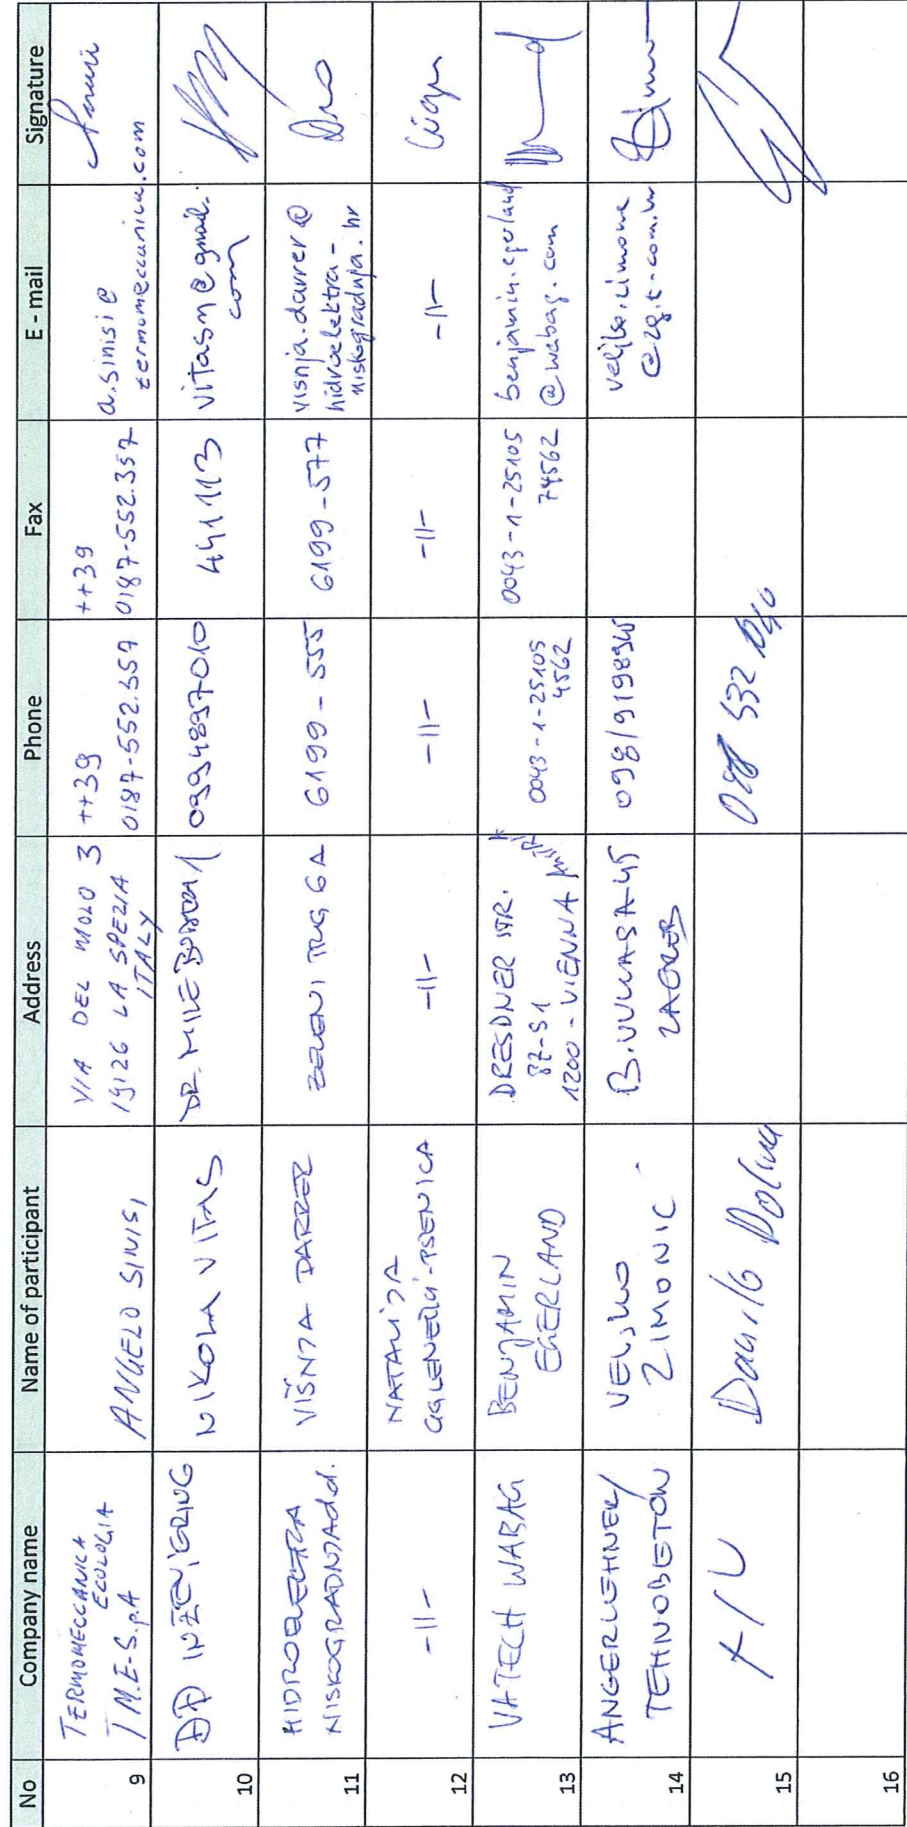 No Company name Name of participant Address Phone Fax E - mail Signature
9
TERMOMECCANICA
ECOLOGIA
T.M.E-S.p.A
ANGELO SINISI
VIA DEL MOLO 3
19126 LA SPEZIA
ITALY
++39
0187-552.357
++39
0187-552.357
a.sinisi@
termomeccanica.com
10
INŽENJERING
NIKOLA VITAS
DR. MILE BUDAKA 1
0994897010
441113
vitasn@gmail.
com
11
HIDROELEKTRA
NISKOGRADNJA d.d.
VIŠNJA DARRER
ZELENI TRG 6A
6199-555
6199-577
visnja.darrer@
hidroelektra-
niskogradnja.hr
12
-11-
NATALIJA
-PŠENICA
-11-
-11-
-11-
-11-
13
VATECH WABAG
BENJAMIN
EGERLAND
DRESDNER STR.
87-91
1200-VIENNA
0043-1-25105
4562
0043-1-25105
74562
benjamin.egerland
@wabag.com
14
ANGERLEHNER/
TEHNOBETON
VELJKO
ZIMONIC
ZAGREB
098/919894
veljko.zimonic
@zg.t-com.hr
15
Danilo Dolina
532
16